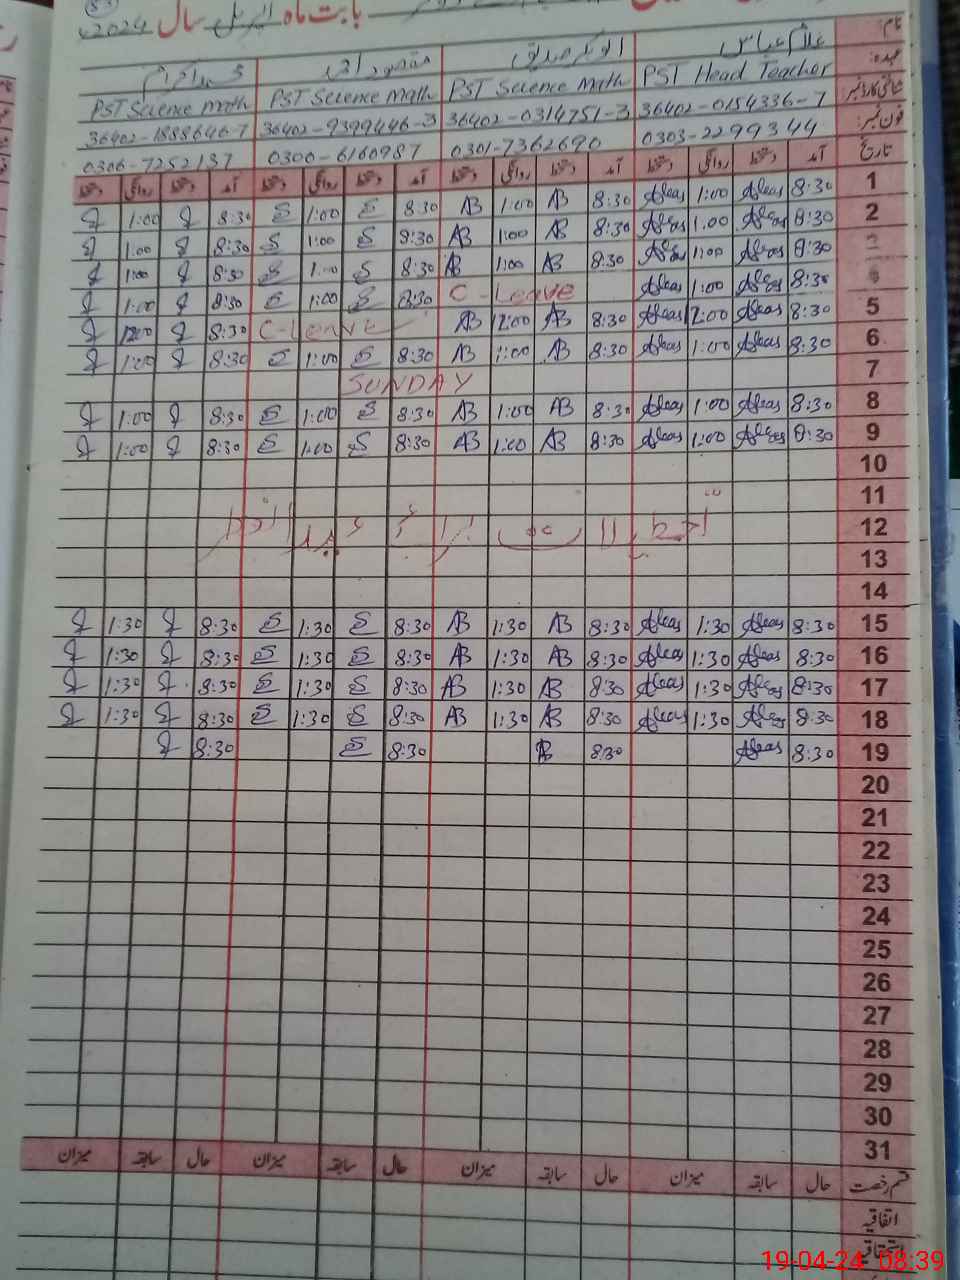 بابت ماہ اپریل سال 2024ء
نام: غلام عباس
عہدہ: PST Head Teacher PST Science Math PST Science Math PST Science Math
شناختی کارڈ نمبر 36402-0154336-7 36402-0314751-3 36402-9399446-3 36402-1888646-7
فون نمبر: 0303-2299344 0301-7362690 0300-6160987 0306-7252137
تاریخ آمد دستخط روانگی دستخط آمد دستخط روانگی دستخط آمد دستخط روانگی دستخط آمد دستخط روانگی دستخط
1 8:30 Abbas 1:00 Abbas 8:30 AB 1:00 AB 8:30 S 1:00 S 8:30 1:00
2 8:30 Abbas 1:00 Abbas 8:30 AB 1:00 AB 8:30 S 1:00 S 8:30 1:00
3 8:30 Abbas 1:00 Abbas 8:30 AB 1:00 AB 8:30 S 1:00 S 8:30 1:00
4 8:30 Abbas 1:00 Abbas C-Leave 8:30 S 1:00 S 8:30 1:00
5 8:30 Abbas 12:00 Abbas 8:30 AB 12:00 AB C-Leave 8:30 12:00
6 8:30 Abbas 1:00 Abbas 8:30 AB 1:00 AB 8:30 S 1:00 S 8:30 1:00
7 SUNDAY
8 8:30 Abbas 1:00 Abbas 8:30 AB 1:00 AB 8:30 S 1:00 S 8:30 1:00
9 8:30 Abbas 1:00 Abbas 8:30 AB 1:00 AB 8:30 S 1:00 S 8:30 1:00
10
11
12 تعطیلات برائے عیدالفطر
13
14
15 8:30 Abbas 1:30 Abbas 8:30 AB 1:30 AB 8:30 S 1:30 S 8:30 1:30
16 8:30 Abbas 1:30 Abbas 8:30 AB 1:30 AB 8:30 S 1:30 S 8:30 1:30
17 8:30 Abbas 1:30 Abbas 8:30 AB 1:30 AB 8:30 S 1:30 S 8:30 1:30
18 8:30 Abbas 1:30 Abbas 8:30 AB 1:30 AB 8:30 S 1:30 S 8:30 1:30
19 8:30 Abbas 8:30 AB 8:30 S 8:30
20
21
22
23
24
25
26
27
28
29
30
31
قسم رخصت حال سابقہ میزان حال سابقہ میزان حال سابقہ میزان حال سابقہ میزان
اتفاقیہ
استحقاقیہ
19-04-24 08:39